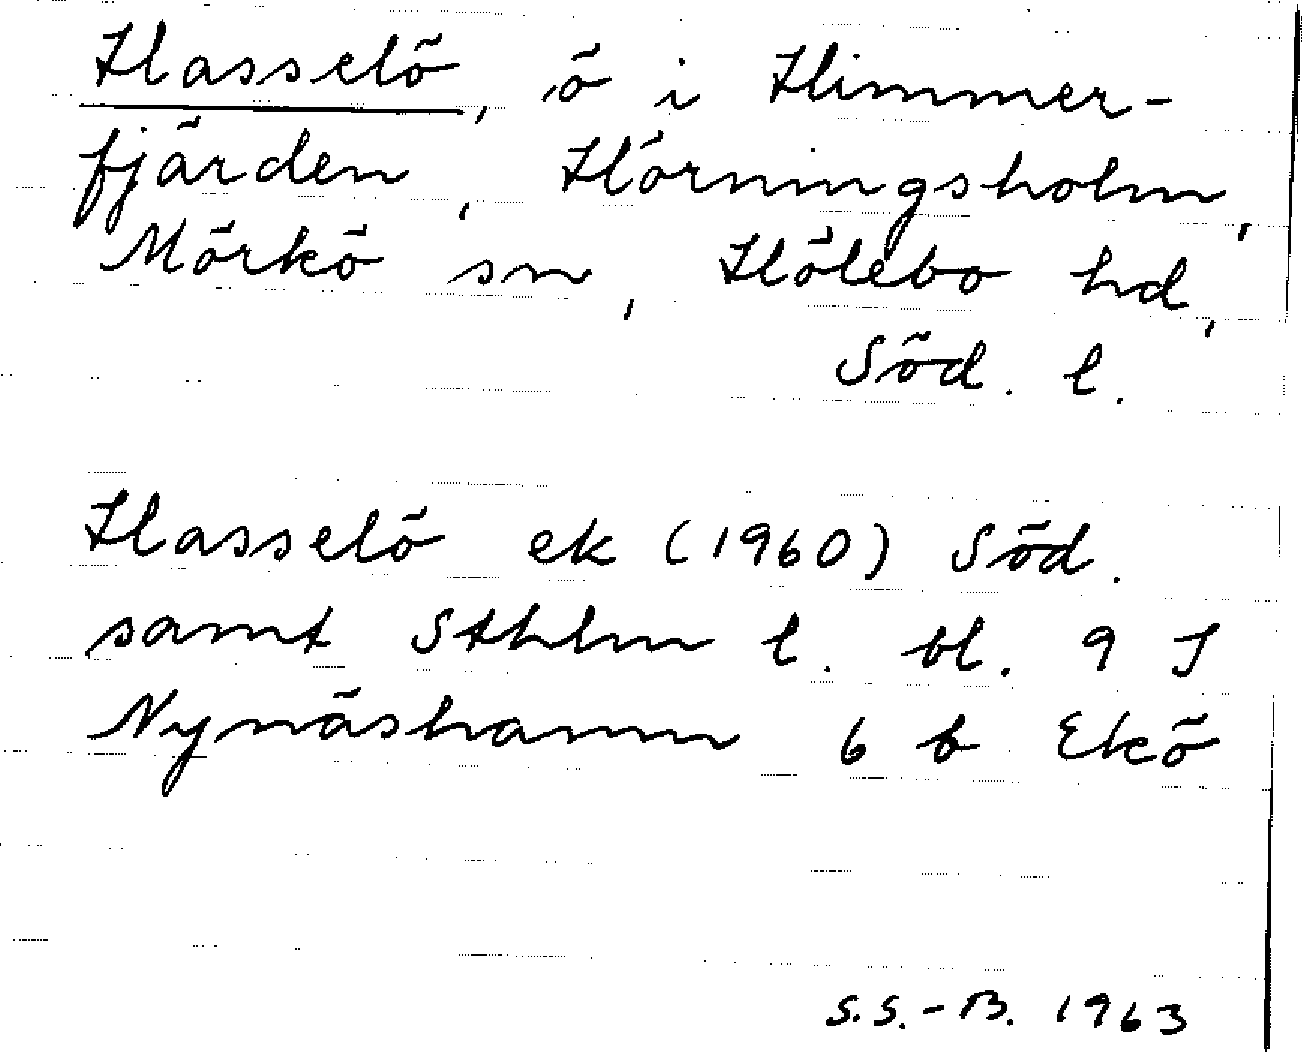 Hasselö, ö i Himmer-
fjärden, Hörningsholm,
Mörkö sn, Hölebo hd,
Söd. l.
Hasselö ek (1960) Söd.
samt Sthlm l. bl. 9 I
Nynäshamn 6 b Ekö
S.S.-B. 1963